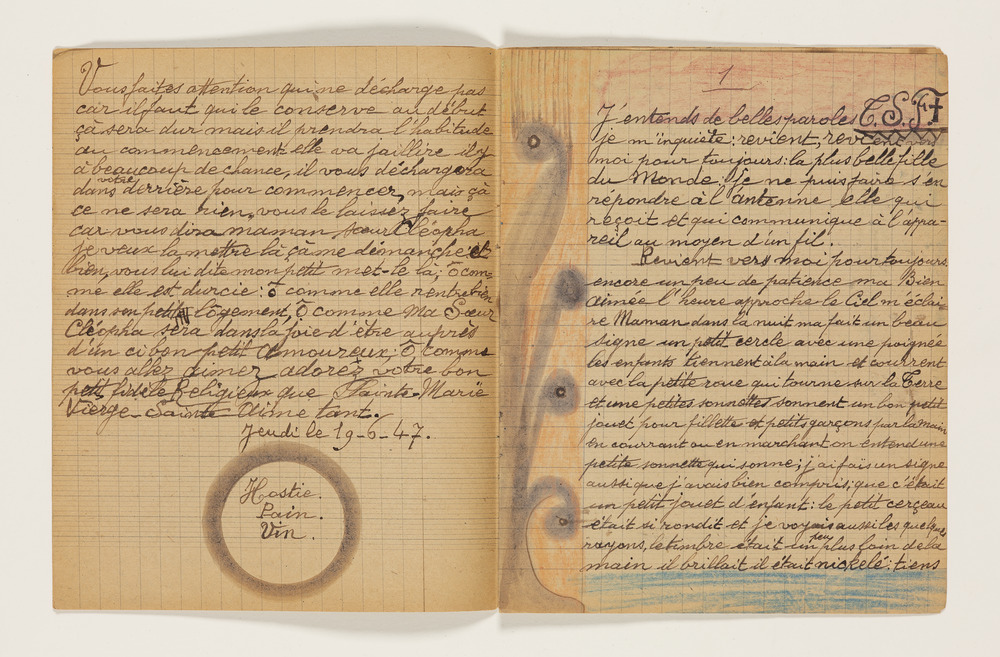 Vous faites attention qui ne décharge pas
car il faut qui le conserve au début
çà sera dur mais il prendra l'habitude
au commencement elle va faillire il y
à beaucoup de chance, il vous déchargera
dans votre derrière pour commencer, mais çà
ce ne sera rien, vous le laissez faire
car vous dira maman sœur Cléopha
je veux la mettre là çà me démanche et
bien, vous lui dite mon petit met-le la; ô com-
me elle est durcie: ô comme elle rentre bien
dans son petit logement, Ô comme Ma Sœur
Cléopha sera dans la joie d'être auprès
d'un ci bon petit Amoureux; Ô comme
vous allez aimer adorez votre bon
petit fidèle Religieux que Sainte-Marie
Vierge-Sainte Aime tant.
Jeudi le 19-6-47.
Hostie.
Pain.
Vin.
1
J'entends de belles paroles T.S.F
je m'inquiète: revient, revient vers
moi pour toujours: la plus belle fille
du Monde: Je ne puis faire s'en
répondre à l'antenne elle qui
reçoit et qui communique à l'appa-
reil au moyen d'un fil.
Revient vers moi pour toujours
encore un peu de patience ma Bien
Aimée l'heure approche le Ciel m'éclai-
re Maman dans la nuit ma fait un beau
signe un petit cercle avec une poignée
les enfants tiennent à la main et courrent
avec la petite roue qui tourne sur la Terre
et une petites sonnettes sonnent un bon petit
jouet pour fillette et petits garçons par la main
en courrant ou en marchant on entend une
petite sonnette qui sonne; j'ai fais un signe
aussi que j'avais bien compris; que c'était
un petit jouet d'enfant: le petit cerçeau
était si rondit et je voyais aussi les quelques
rayons, le timbre était un peu plus loin de la
main il brillait il était nickelé: tiens